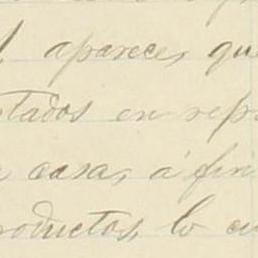 aparece, qu
tados en rep
casa, á fin
roductos, lo cu